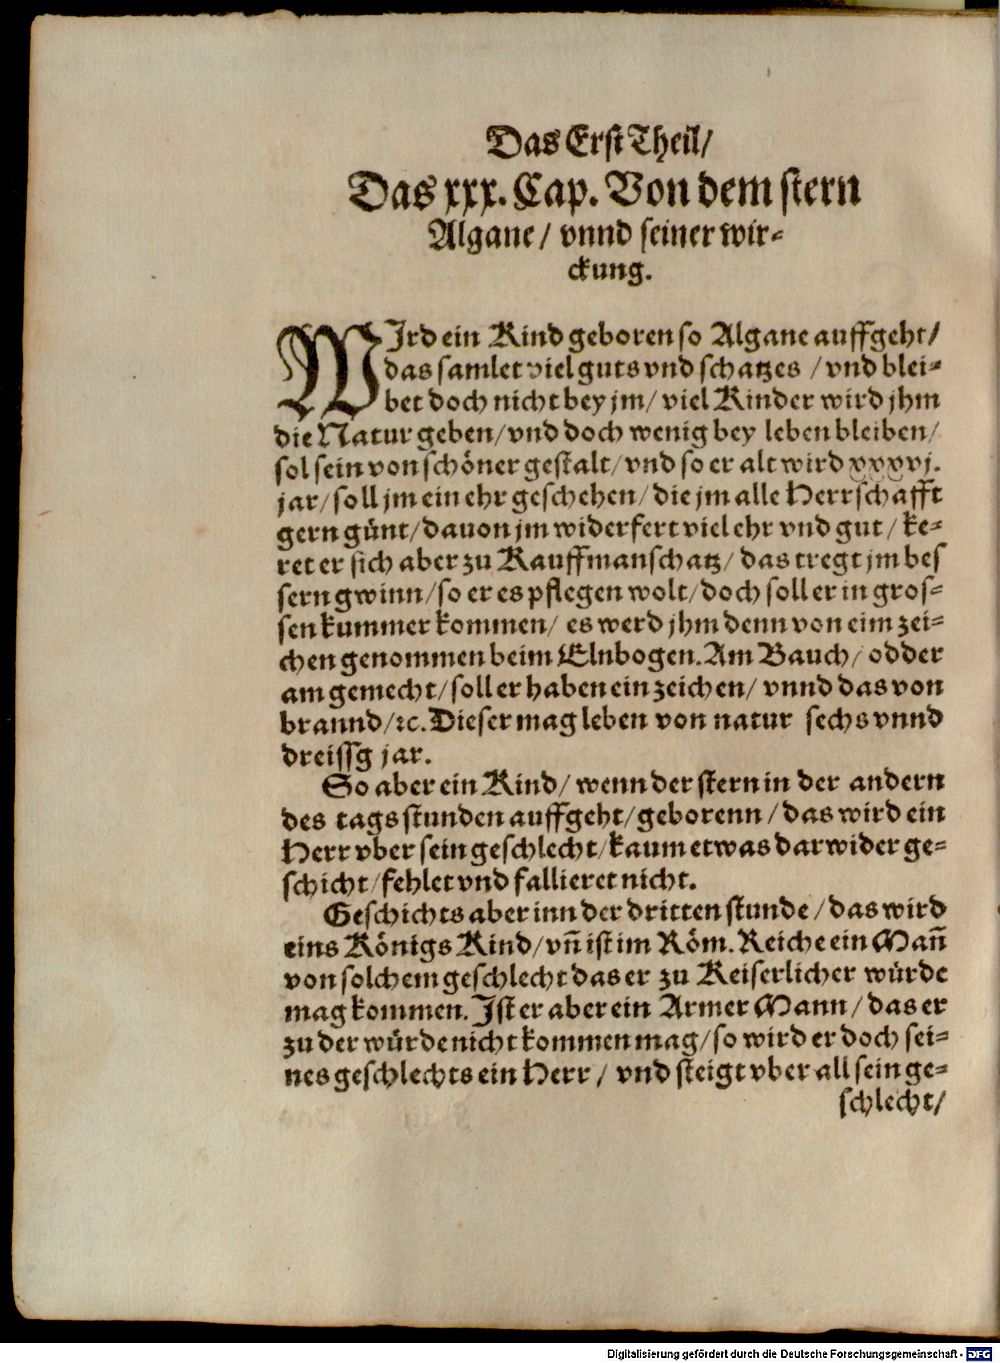 Das Erst Theil/
Das xxx. Cap. Von dem stern
Algane/ vnnd seiner wir-
ckung.
WIrd ein Kind geboren so Algane auffgeht/
das samlet viel guts vnd schatzes / vnd blei-
bet doch nicht bey jm/ viel Kinder wird jhm
die Natur geben/ vnd doch wenig bey leben bleiben/
sol sein von schöner gestalt/ vnd so er alt wird xxxvj.
jar/ soll jm ein ehr geschehen/ die jm alle Herrschafft
gern günt/ dauon jm widerfert viel ehr vnd gut/ ke-
ret er sich aber zu Kauffmanschatz/ das tregt jm bes
sern gwinn/ so er es pflegen wolt/ doch soll er in gros-
sen kummer kommen/ es werd jhm denn von eim zei-
chen genommen beim Elnbogen. Am Bauch/ odder
am gemecht/ soll er haben ein zeichen/ vnnd das von
brannd/ ꝛc. Dieser mag leben von natur sechs vnnd
dreissg jar.
So aber ein Kind/ wenn der stern in der andern
des tags stunden auffgeht/ geborenn/ das wird ein
Herr vber sein geschlecht/ kaum etwas darwider ge-
schicht/ fehlet vnd fallieret nicht.
Geschichts aber inn der dritten stunde/ das wird
eins Königs Kind/ vñ ist im Röm. Reiche ein Mañ
von solchem geschlecht das er zu Keiserlicher würde
mag kommen. Ist er aber ein Armer Mann/ das er
zu der würde nicht kommen mag/ so wird er doch sei-
nes geschlechts ein Herr/ vnd steigt vber all sein ge-
schlecht/
Digitalisierung gefördert durch die Deutsche Forschungsgemeinschaft - DFG